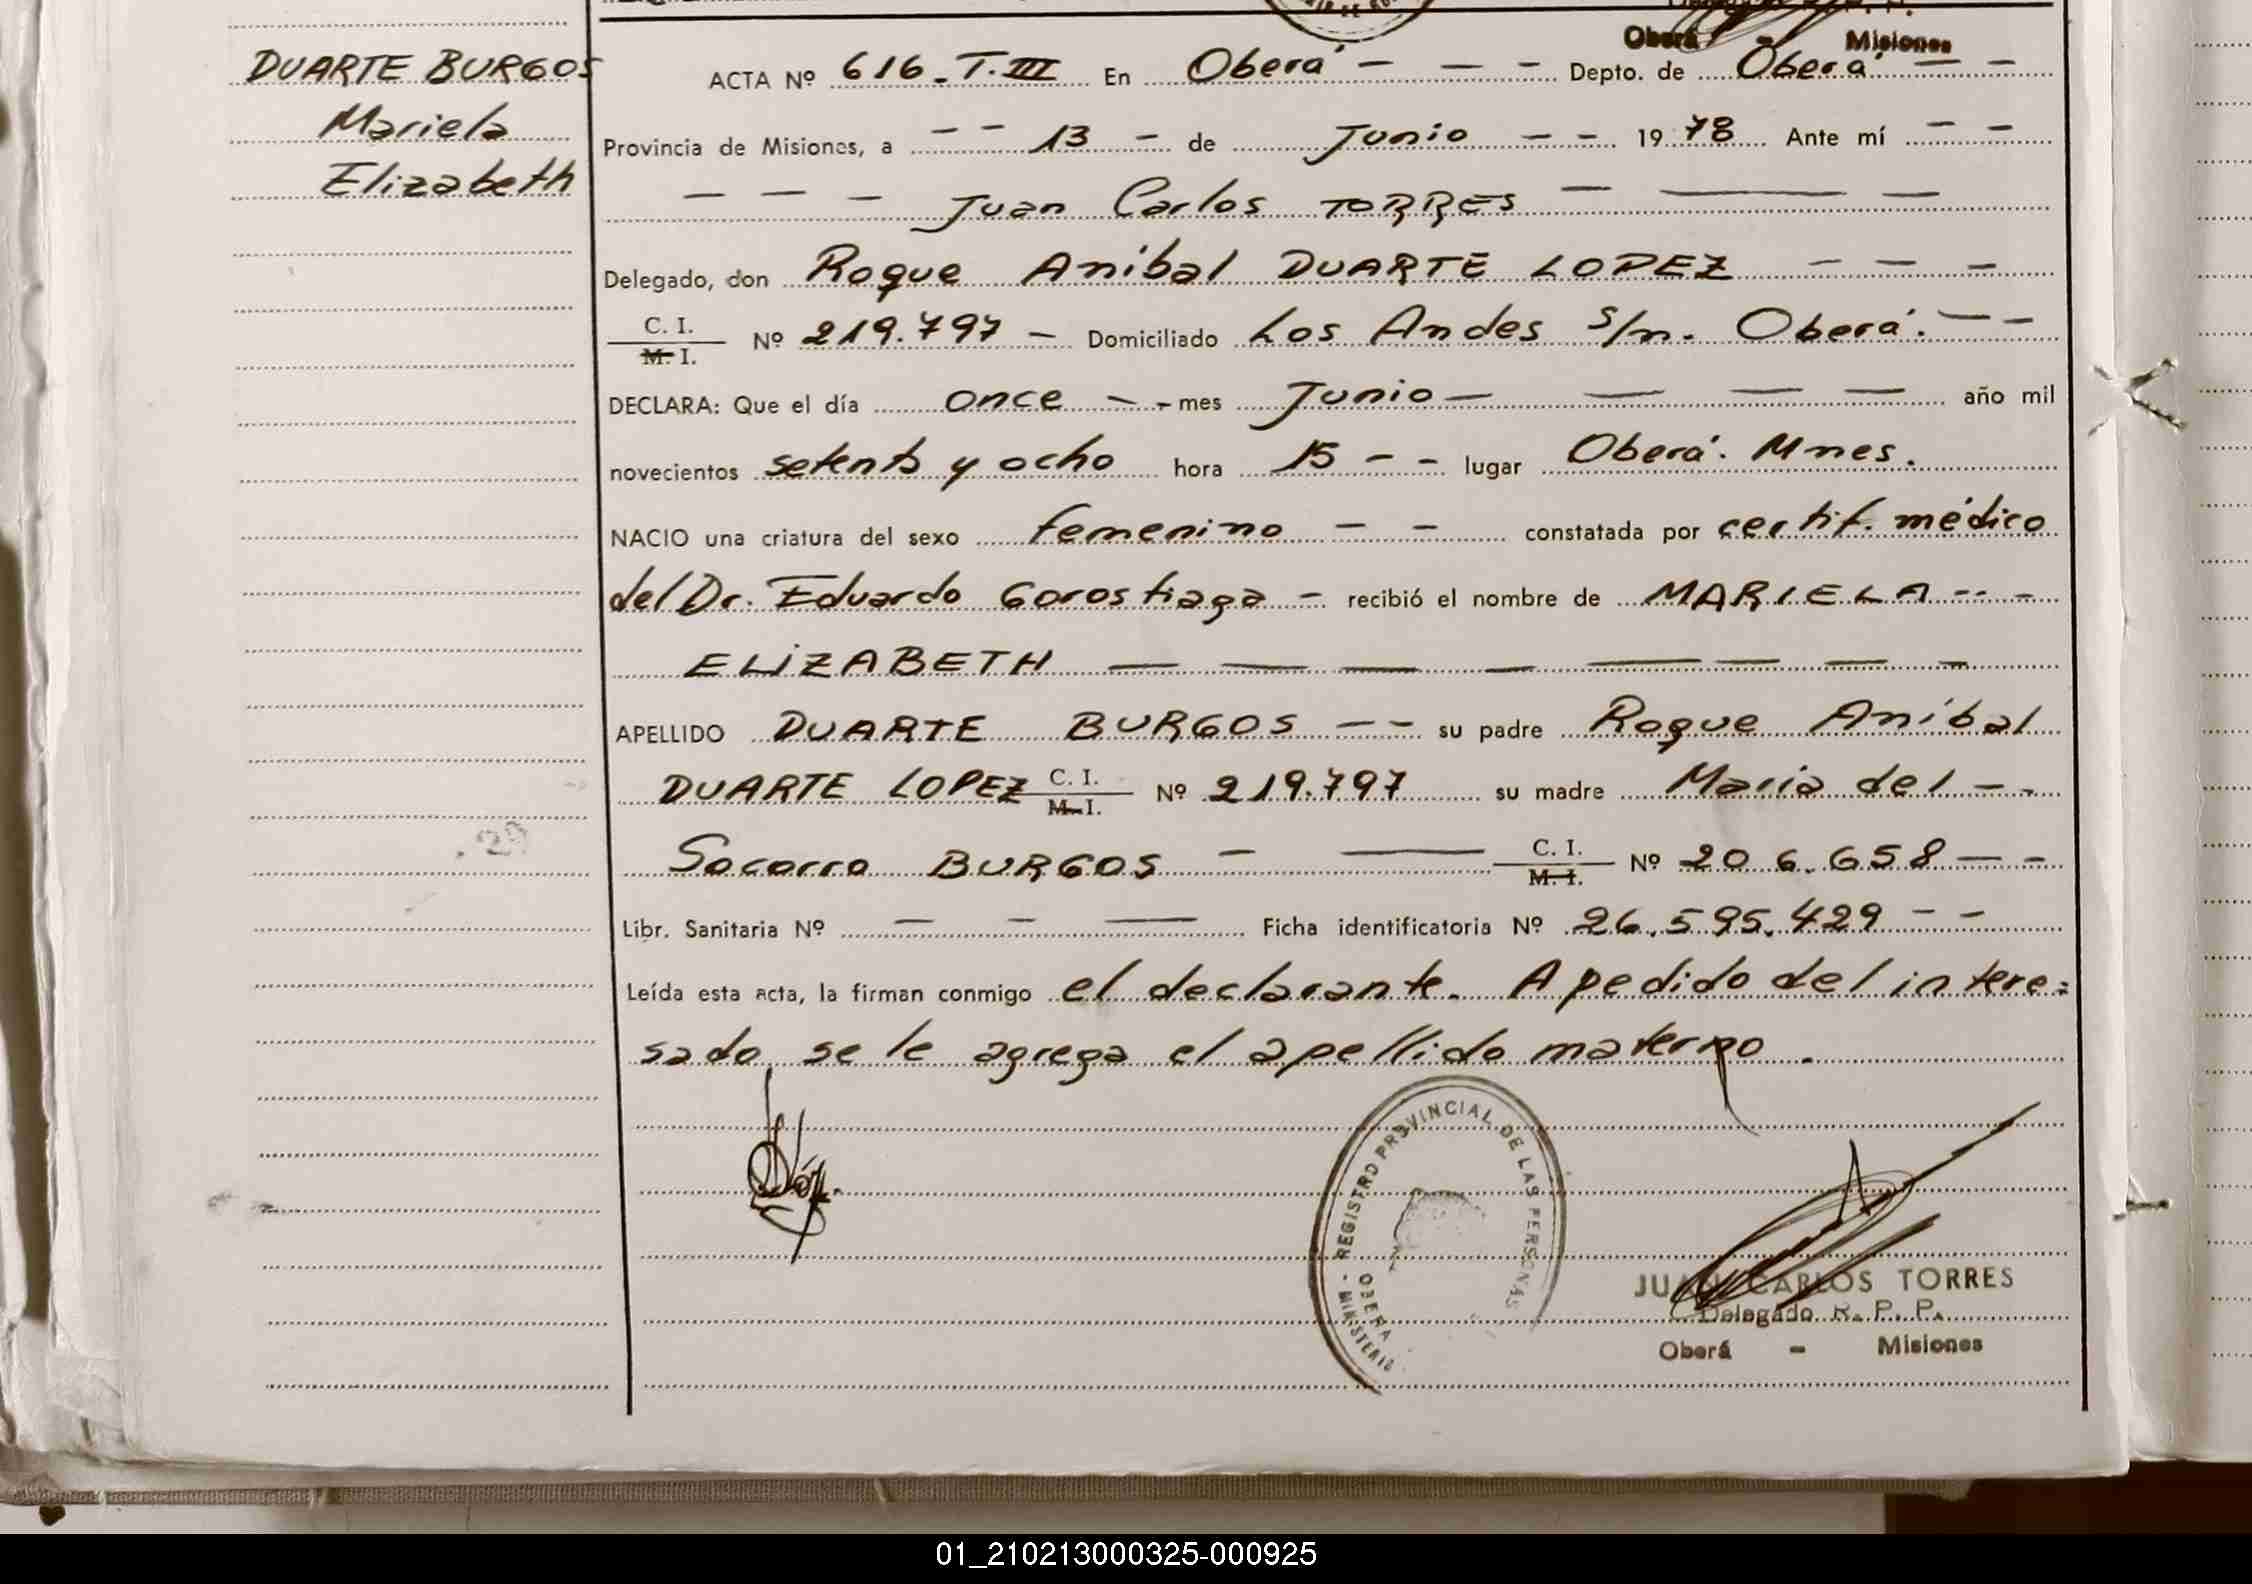 Oberá - Misiones
DUARTE BURGOS
Mariela
Elizabeth
ACTA Nº 616. T. III En Oberá - - - Depto. de Oberá - -
Provincia de Misiones, a - - 13 - de Junio - - 1978 Ante mí - -
- - - Juan Carlos TORRES - - -
Delegado, don Roque Aníbal DUARTE LOPEZ - - -
C. I.
M. I. Nº 219.797 - Domiciliado Los Andes s/n. Oberá. - -
DECLARA: Que el día once - - mes Junio - - - - año mil
novecientos setenta y ocho hora 15 - - lugar Oberá. Mnes.
NACIO una criatura del sexo femenino - - constatada por certif. médico
del Dr. Eduardo Gorostiaga - recibió el nombre de MARIELA - - -
ELIZABETH - - - - - - - -
APELLIDO DUARTE BURGOS - - su padre Roque Aníbal
DUARTE LOPEZ C. I.
M. I. Nº 219.797 su madre María del - -
Socorro BURGOS - - C. I.
M. I. Nº 206.658 - -
Libr. Sanitaria Nº - - - Ficha identificatoria Nº 26.595.429 - -
Leída esta acta, la firman conmigo el declarante. A pedido del intere=
sado se le agrega el apellido materno.
REGISTRO PROVINCIAL DE LAS PERSONAS
- MINISTERIO
OBERA
JUAN CARLOS TORRES
Delegado R. P. P.
Oberá - Misiones
01_210213000325-000925